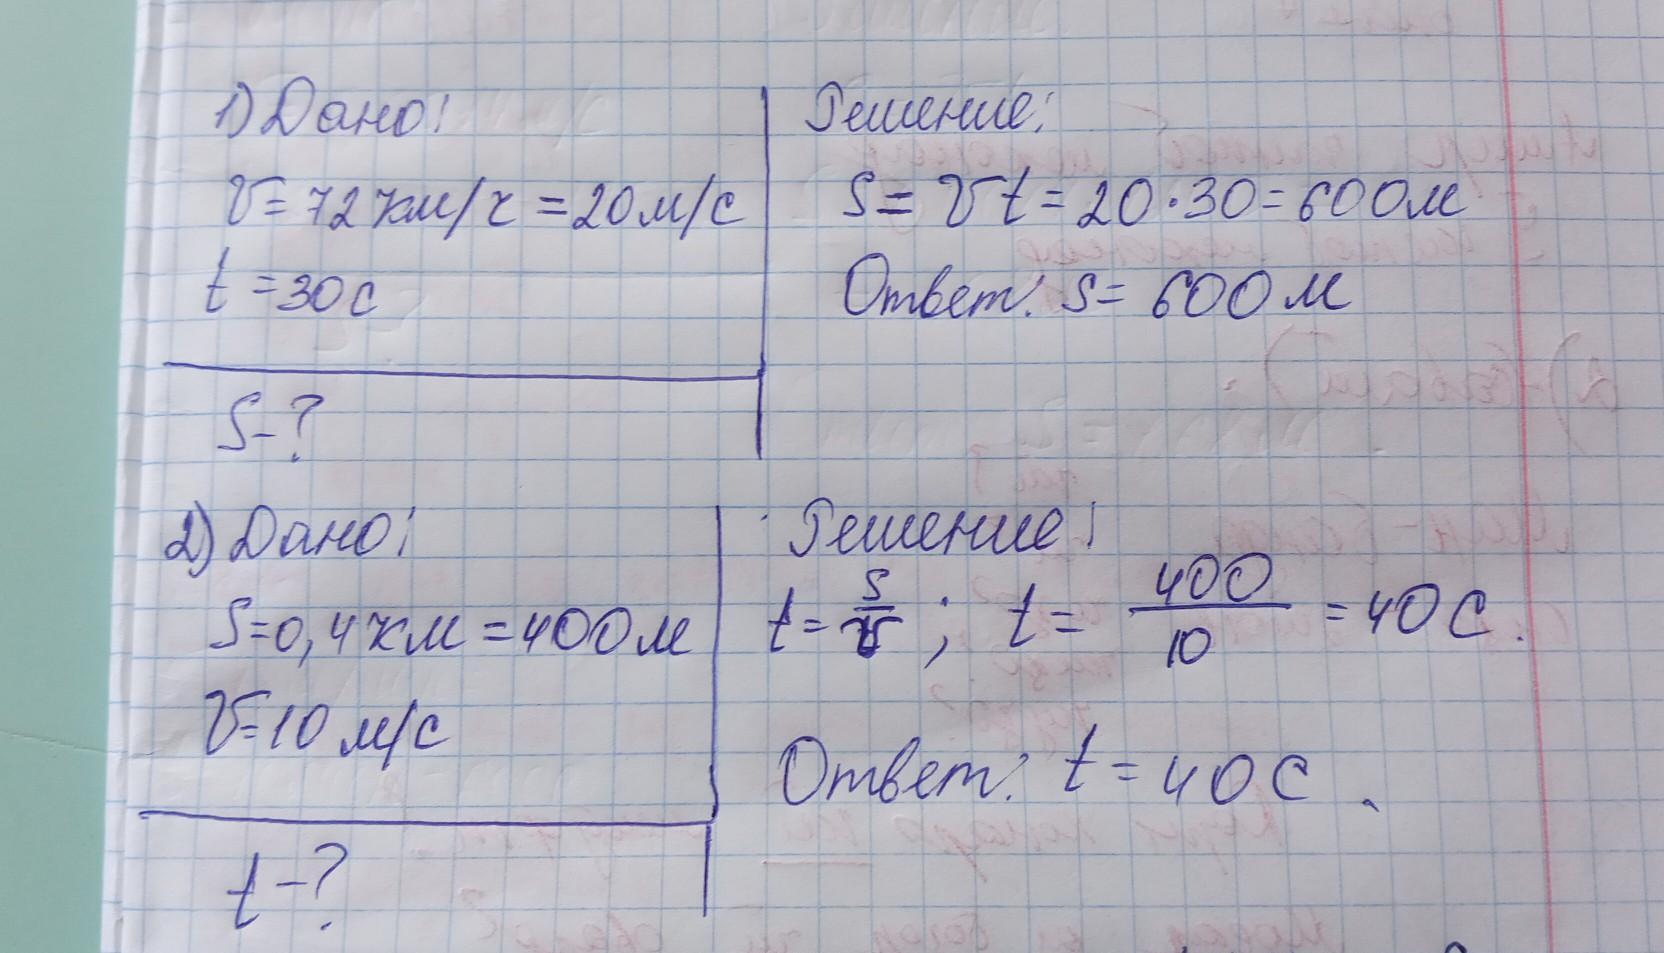 1) Дано:
V = 72 км/ч = 20 м/с
t = 30 с
S - ?
Решение:
S = Vt = 20 · 30 = 600 м
Ответ: S = 600 м
2) Дано:
S = 0,4 км = 400 м
V = 10 м/с
t - ?
Решение:
t = S/V ; t = 400/10 = 40 с.
Ответ: t = 40 с.